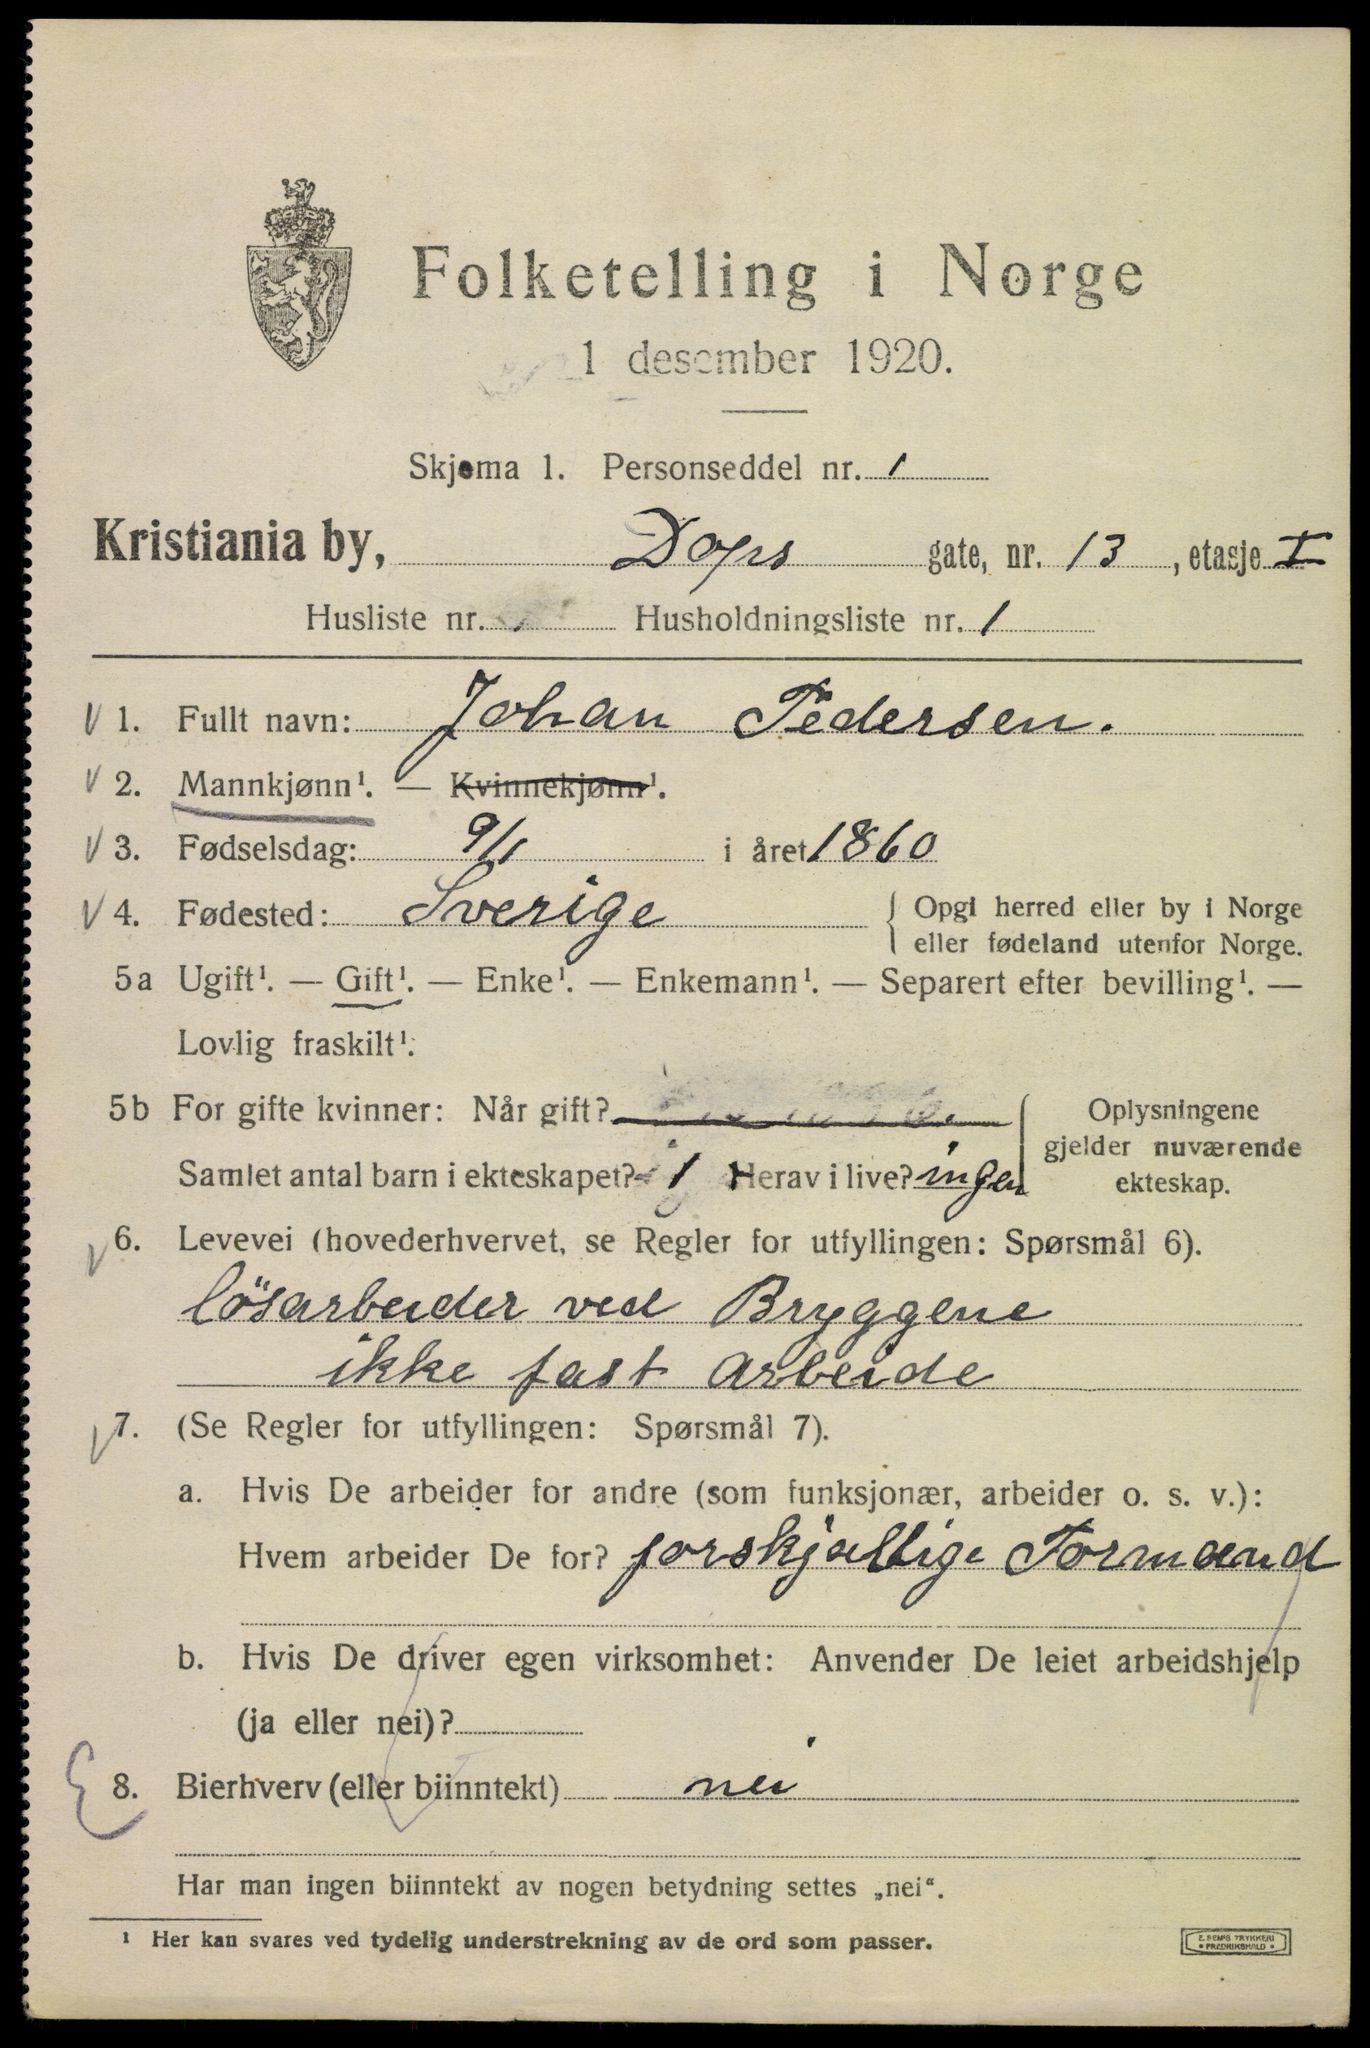 Folketelling i Norge
1 desember 1920.
Skjema 1. Personseddel nr. 1
Kristiania by, Dops gate, nr. 13, etasje I
Husliste nr. Husholdningsliste nr. 1
V 1. Fullt navn: Johan Pedersen.
V 2. Mannkjønn¹. — Kvinnekjønn¹.
V 3. Fødselsdag: 9/1 i året 1860
V 4. Fødested: Sverige { Opgi herred eller by i Norge
eller fødeland utenfor Norge.
5a Ugift¹. — Gift¹. — Enke¹. — Enkemann¹. — Separert efter bevilling¹. —
Lovlig fraskilt¹.
5b For gifte kvinner: Når gift?
Samlet antal barn i ekteskapet? 1 Herav i live? ingen
Oplysningene
gjelder nuværende
ekteskap.
V 6. Levevei (hovederhvervet, se Regler for utfyllingen: Spørsmål 6).
lösarbeider ved Bryggene
ikke fast arbeide
V 7. (Se Regler for utfyllingen: Spørsmål 7).
a. Hvis De arbeider for andre (som funksjonær, arbeider o. s. v.):
Hvem arbeider De for? forskjællige Formænd
b. Hvis De driver egen virksomhet: Anvender De leiet arbeidshjelp
(ja eller nei)?
8. Bierhverv (eller biinntekt) nei
Har man ingen biinntekt av nogen betydning settes „nei“.
¹ Her kan svares ved tydelig understrekning av de ord som passer.
E. SEMS TRYKKERI
• FREDRIKSHALD •